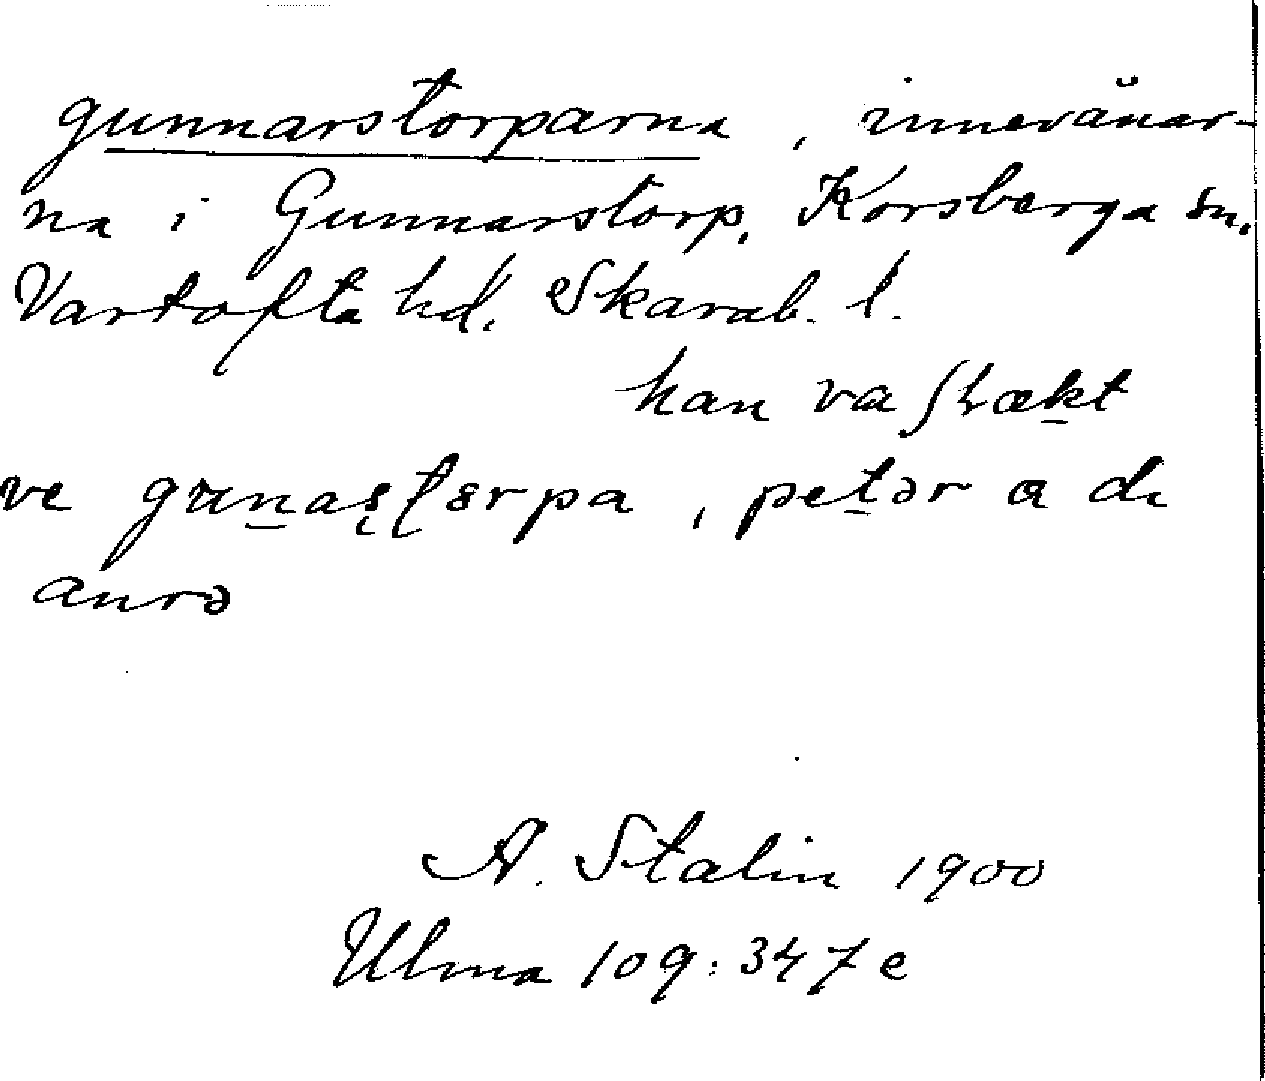 gunnarstorparna, innevånar-
na i Gunnarstorp, Korsberga sn.
Vartofta hd. Skarab. l.
han va
ve gunaʂʈɞrpa, petər a di
anrə
A. Stalin 1900
Ulma 109:347 e